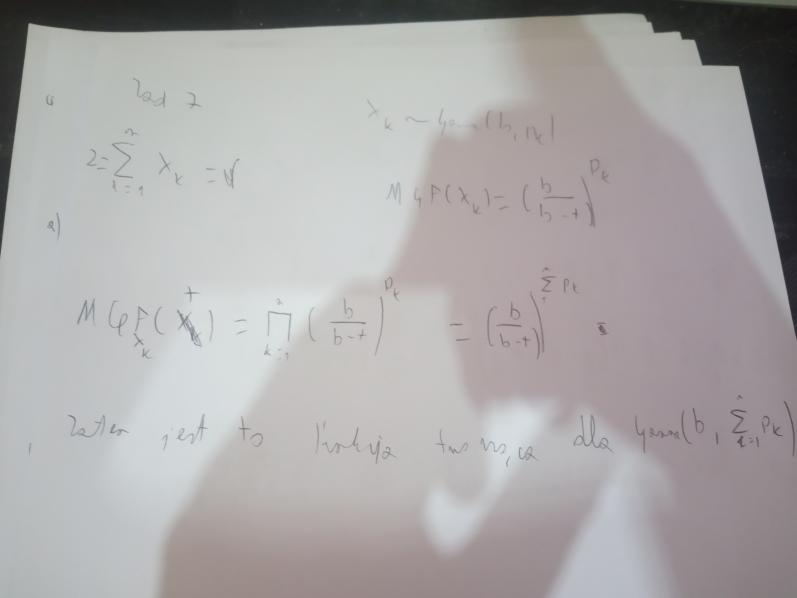 Zad 7
X_k ~ Gam(b, p_k)
Z = \sum_{k=1}^{n} X_k =
MGF(X_k) = (\frac{b}{b-t})^{p_k}
a)
MGF_{X_k}(t) = \prod_{k=1}^{n} (\frac{b}{b-t})^{p_k} = (\frac{b}{b-t})^{\sum_{1}^{n} p_k}
Zatem jest to funkcja tworząca dla Gamma(b, \sum_{k=1}^{n} p_k)